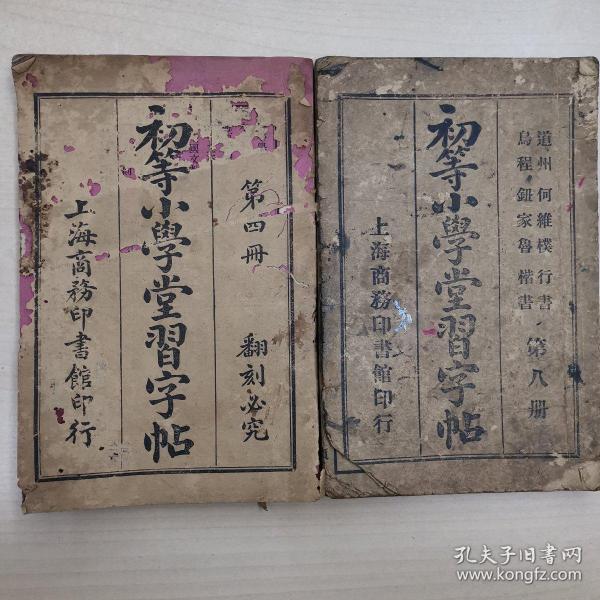 第四冊
翻刻必究
初等小學堂習字帖
上海商務印書館印行
道州何維樸行書
烏程鈕家魯楷書
第八册
初等小學堂習字帖
上海商務印書館印行
孔夫子旧书网
www.kongfz.com